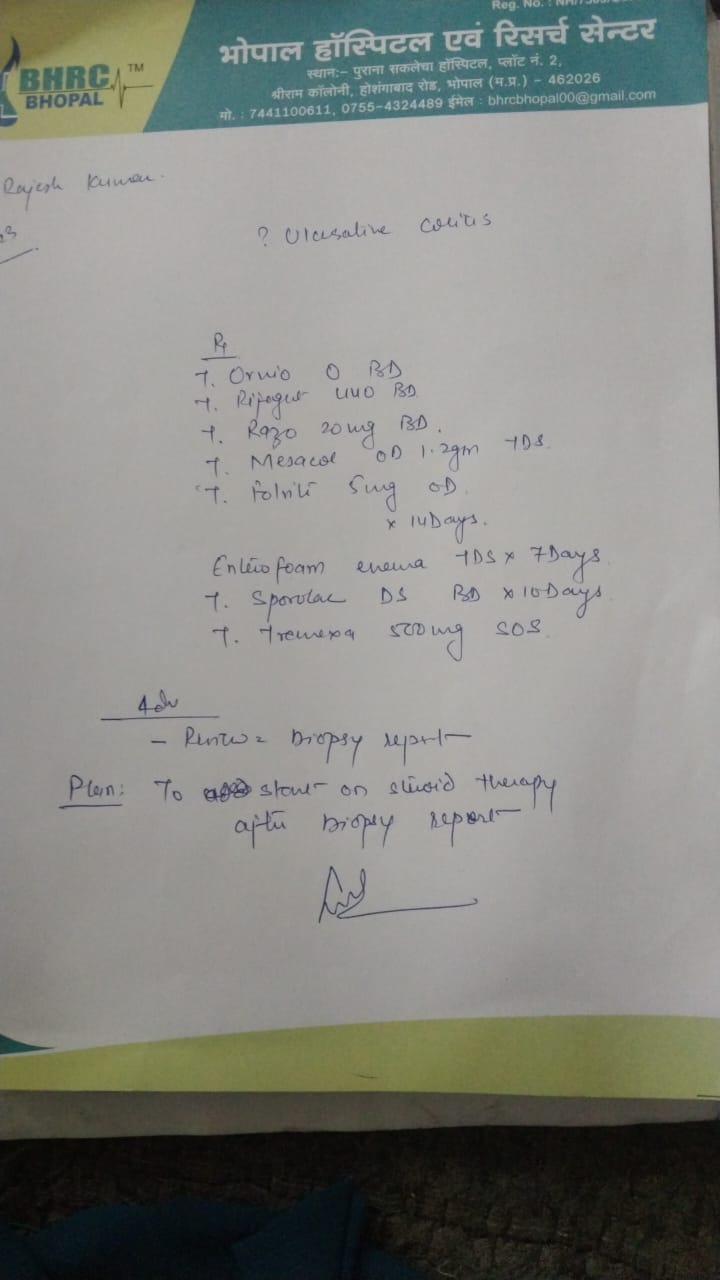 Reg. No. : NH/
भोपाल हॉस्पिटल एवं रिसर्च सेन्टर
BHRC TM
BHOPAL
स्थान:- पुराना सकलेचा हॉस्पिटल, प्लॉट नं. 2,
श्रीराम कॉलोनी, होशंगाबाद रोड, भोपाल (म.प्र.) - 462026
मो. : 7441100611, 0755-4324489 ईमेल : bhrcbhopal00@gmail.com
Rajesh Kumar.
? Ulcerative colitis
Rx
T. Ornio O BD
T. Rifagut 440 BD
T. Razo 20mg BD.
T. Mesacol OD 1.2gm TDS.
T. Folvite 5mg OD.
x 14 Days.
Enterofoam enema TDS x 7 Days
T. Sporolac DS BD x 10 Days
T. Tremexa 500mg SOS.
Adv
- Review = Biopsy report
Plan: To start on steroid therapy
after Biopsy report